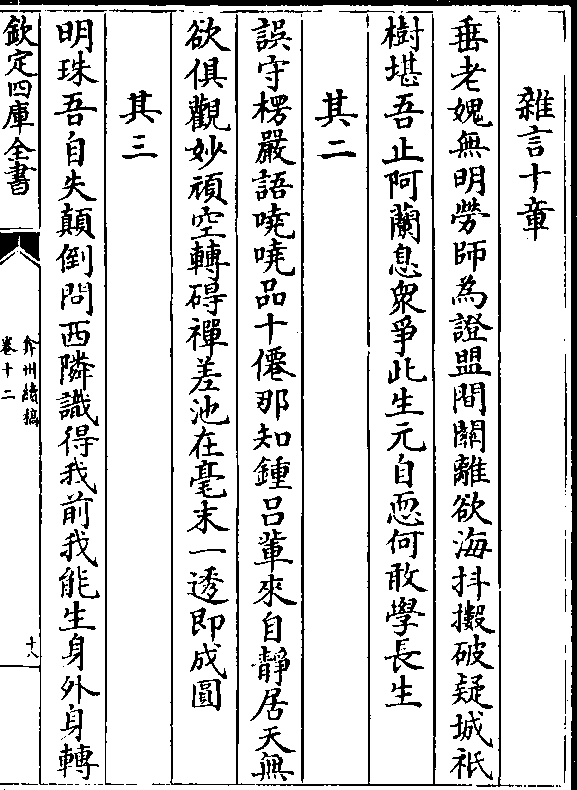 雜言十章
垂老媿無明勞師為證盟間關離欲海抖擻破疑城祇
樹堪吾止阿蘭息衆爭此生元自恧何敢學長生
其二
誤守楞嚴語嘵嘵品十僊那知鍾吕輩來自靜居天無
欲俱觀妙頑空轉碍禪差池在毫末一透即成圓
其三
明珠吾自失顛倒問西隣識得我前我能生身外身轉
欽定四庫全書
弇州續稿
卷十二
十八